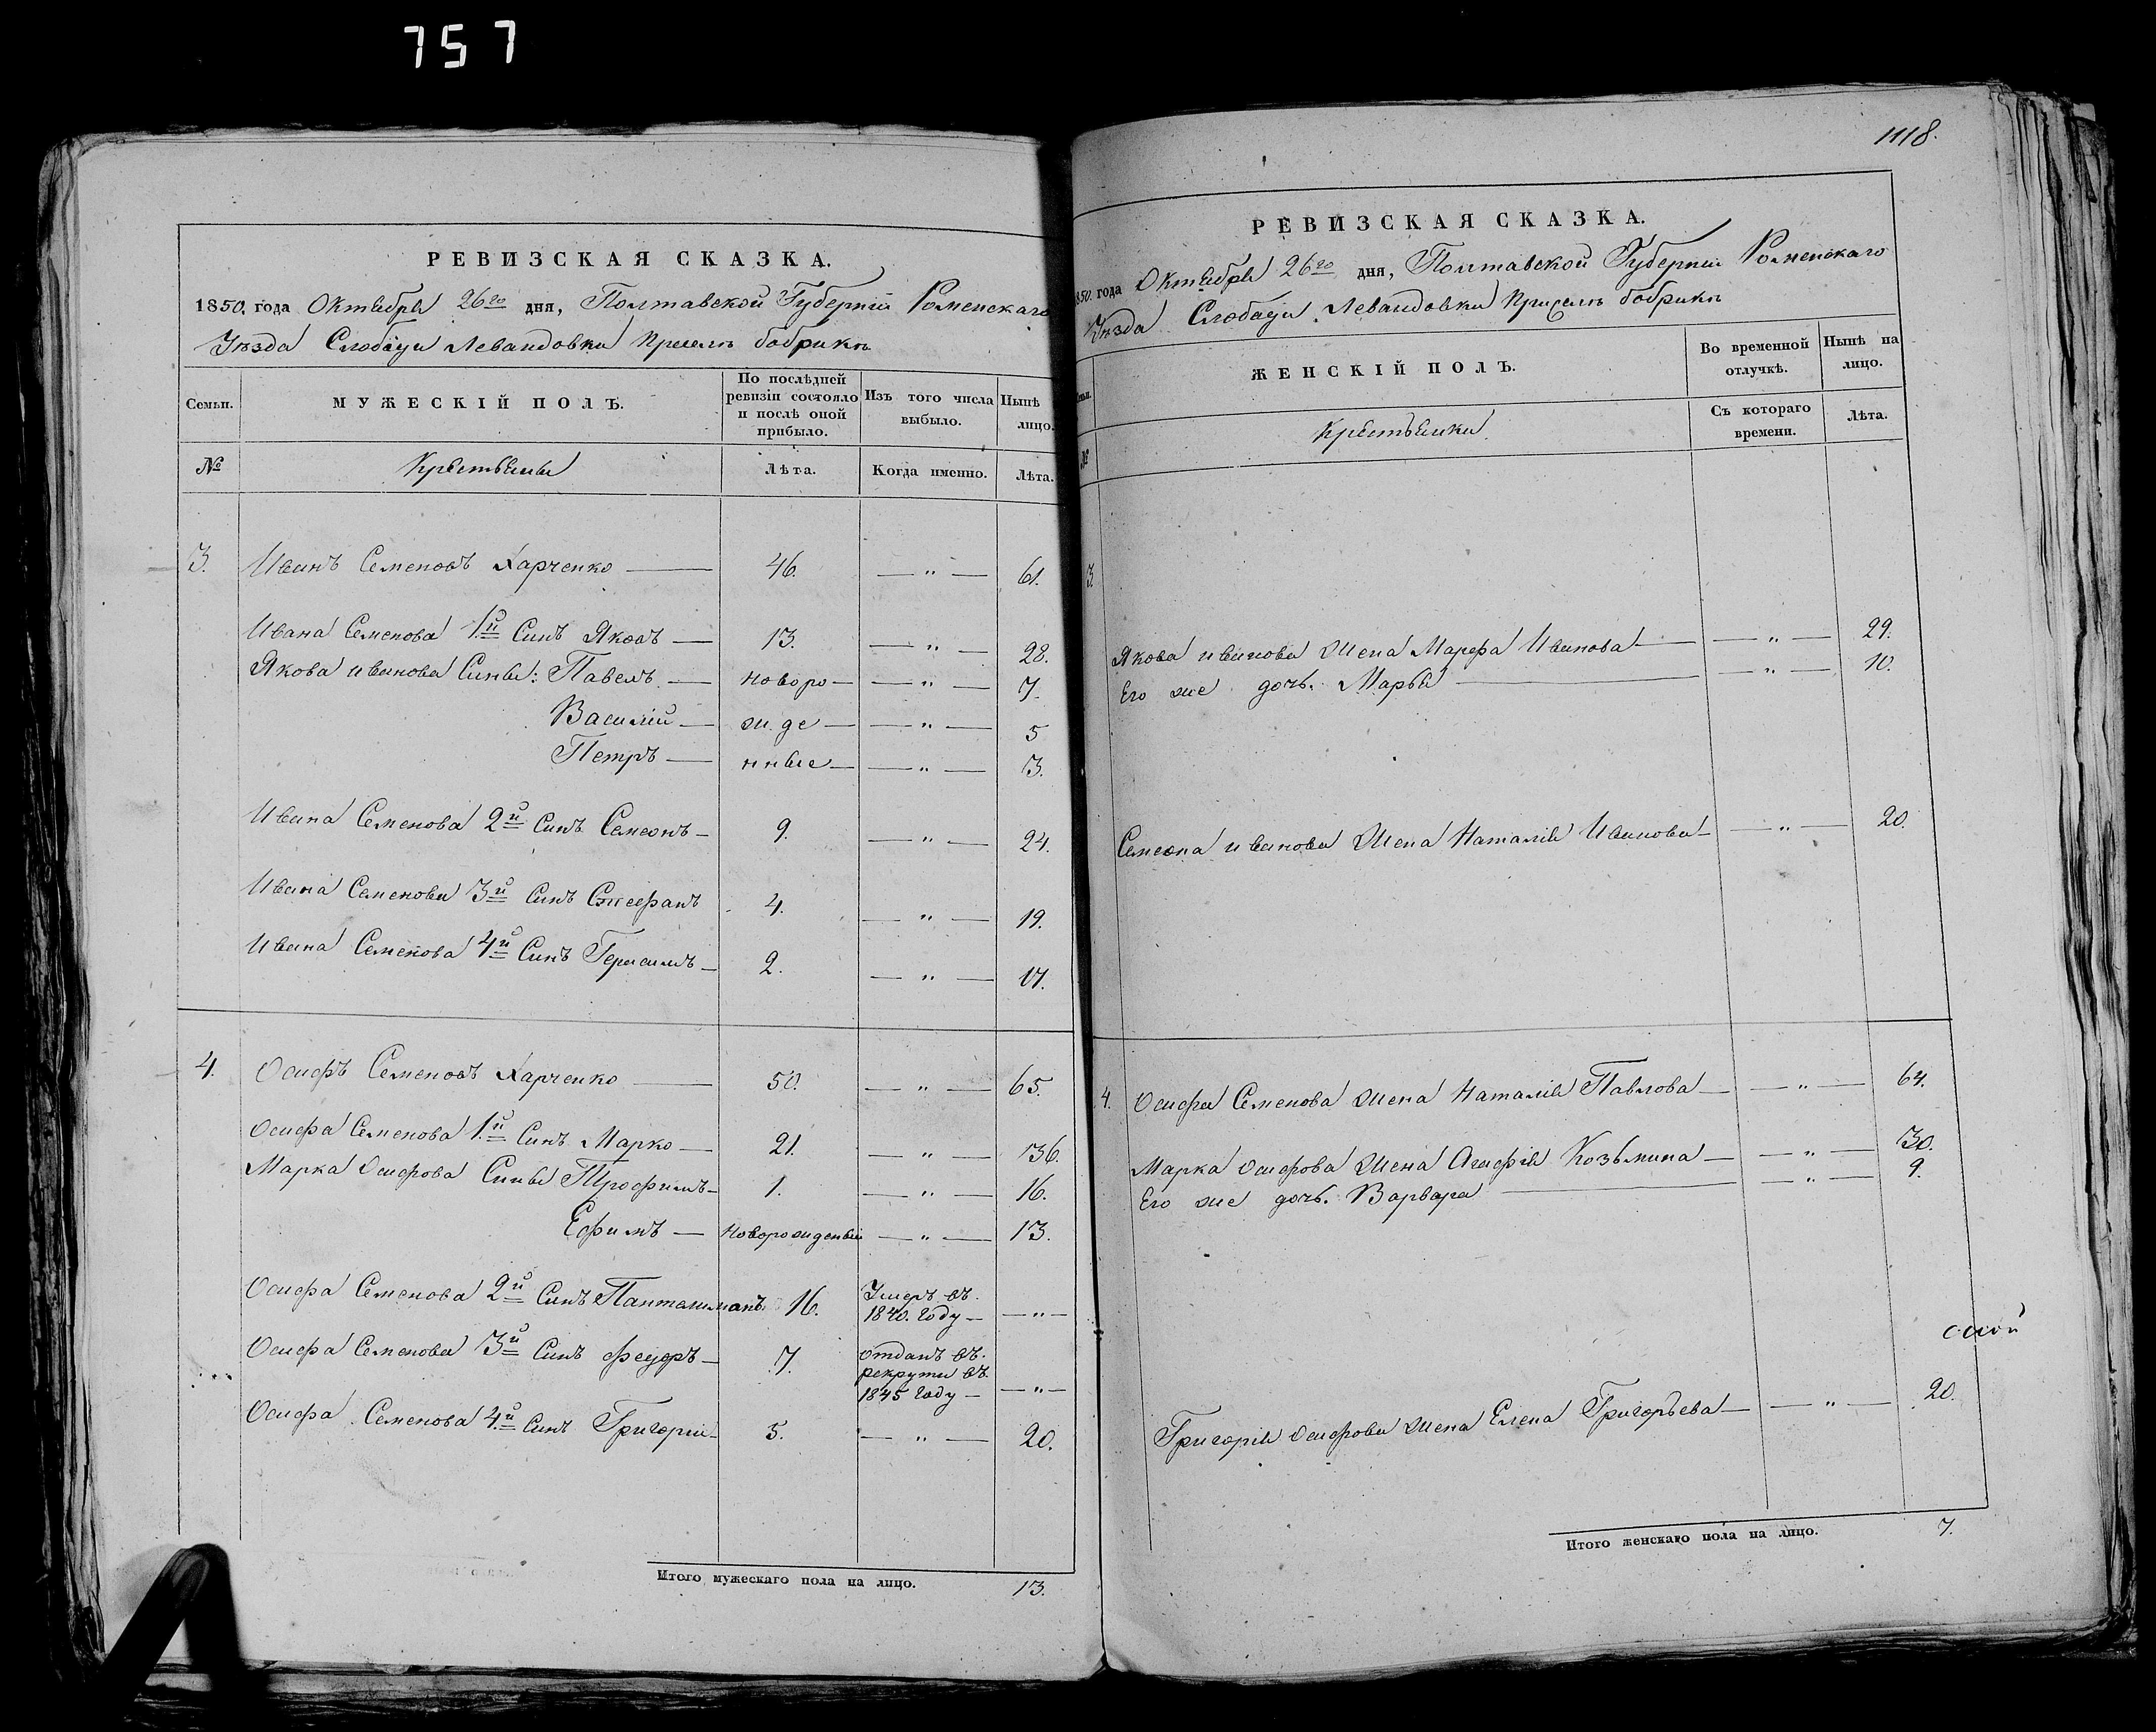 757
РЕВИЗСКАЯ СКАЗКА.
1850. года Октября 26го дня, Полтавской Губерніи Роменскаго
Уѣзда Слободи Левандовки бобрикѣ
Семьи. МУЖЕСКІЙ ПОЛЪ. По послѣдней ревизіи состояло и послѣ оной прибыло. Изъ того числа выбыло. Нынѣ лицо.
№ Крестьяны Лѣта. Когда именно. Лѣта.
3. Иванъ Семеновъ Харченко — 46. — " — 61.
Ивана Семенова 1й Синъ Яковъ — 13. — " — 28.
Якова иванова Сины: Павелъ — новоро — — " — 7.
Василій — ж.де — — " — 5
Петръ — нные — — " — 3.
Ивана Семенова 2й Синъ Семенъ — 9. — " — 24.
Ивана Семенова 3й Синъ Стефанъ 4. — " — 19.
Ивана Семенова 4й Синъ Герасимъ — 2. — " — 17.
4. Осифъ Семеновъ Харченко — 50. — " — 65.
Осифа Семенова 1й Синъ Марко — 21. — " — 36.
Марка Осифова Сины Трофимъ — 1. — " — 16.
Ефимъ — новорожденый — " — 13.
Осифа Семенова 2й Синъ 16. Умеръ въ 1840. Году — — " —
Осифа Семенова 3й Синъ федоръ — 7. отданъ въ рекруты въ 1845 Году — — " —
Осифа Семенова 4й Синъ Григорій — 5. — " — 20.
Итого мужескаго пола на лицо. 13.
1118.
РЕВИЗСКАЯ СКАЗКА.
850. года Октября 26го дня, Полтавской Губерніи Роменскаго
Уѣзда Слободи Левандовки бобрикѣ
ЖЕНСКІЙ ПОЛЪ. Во временной отлучкѣ. Нынѣ на лицо.
№ Крестьянки Съ котораго времени. Лѣта.
3
Якова иванова Жена Марфа Иванова — — " — 29.
Его же дочь. Марья — — " — 10.
Семена иванова Жена Наталія Иванова — — " — 20.
4. Осифа Семенова Жена Наталія Павлова — — " — 64.
Марка Осифова Жена Агафія Козьмина — — " — 30.
Его же дочь. Варвара — — " — 9.
Григорія Осифова Жена Елена Григорьева — — " — 20.
Итого женскаго пола на лицо. 7.